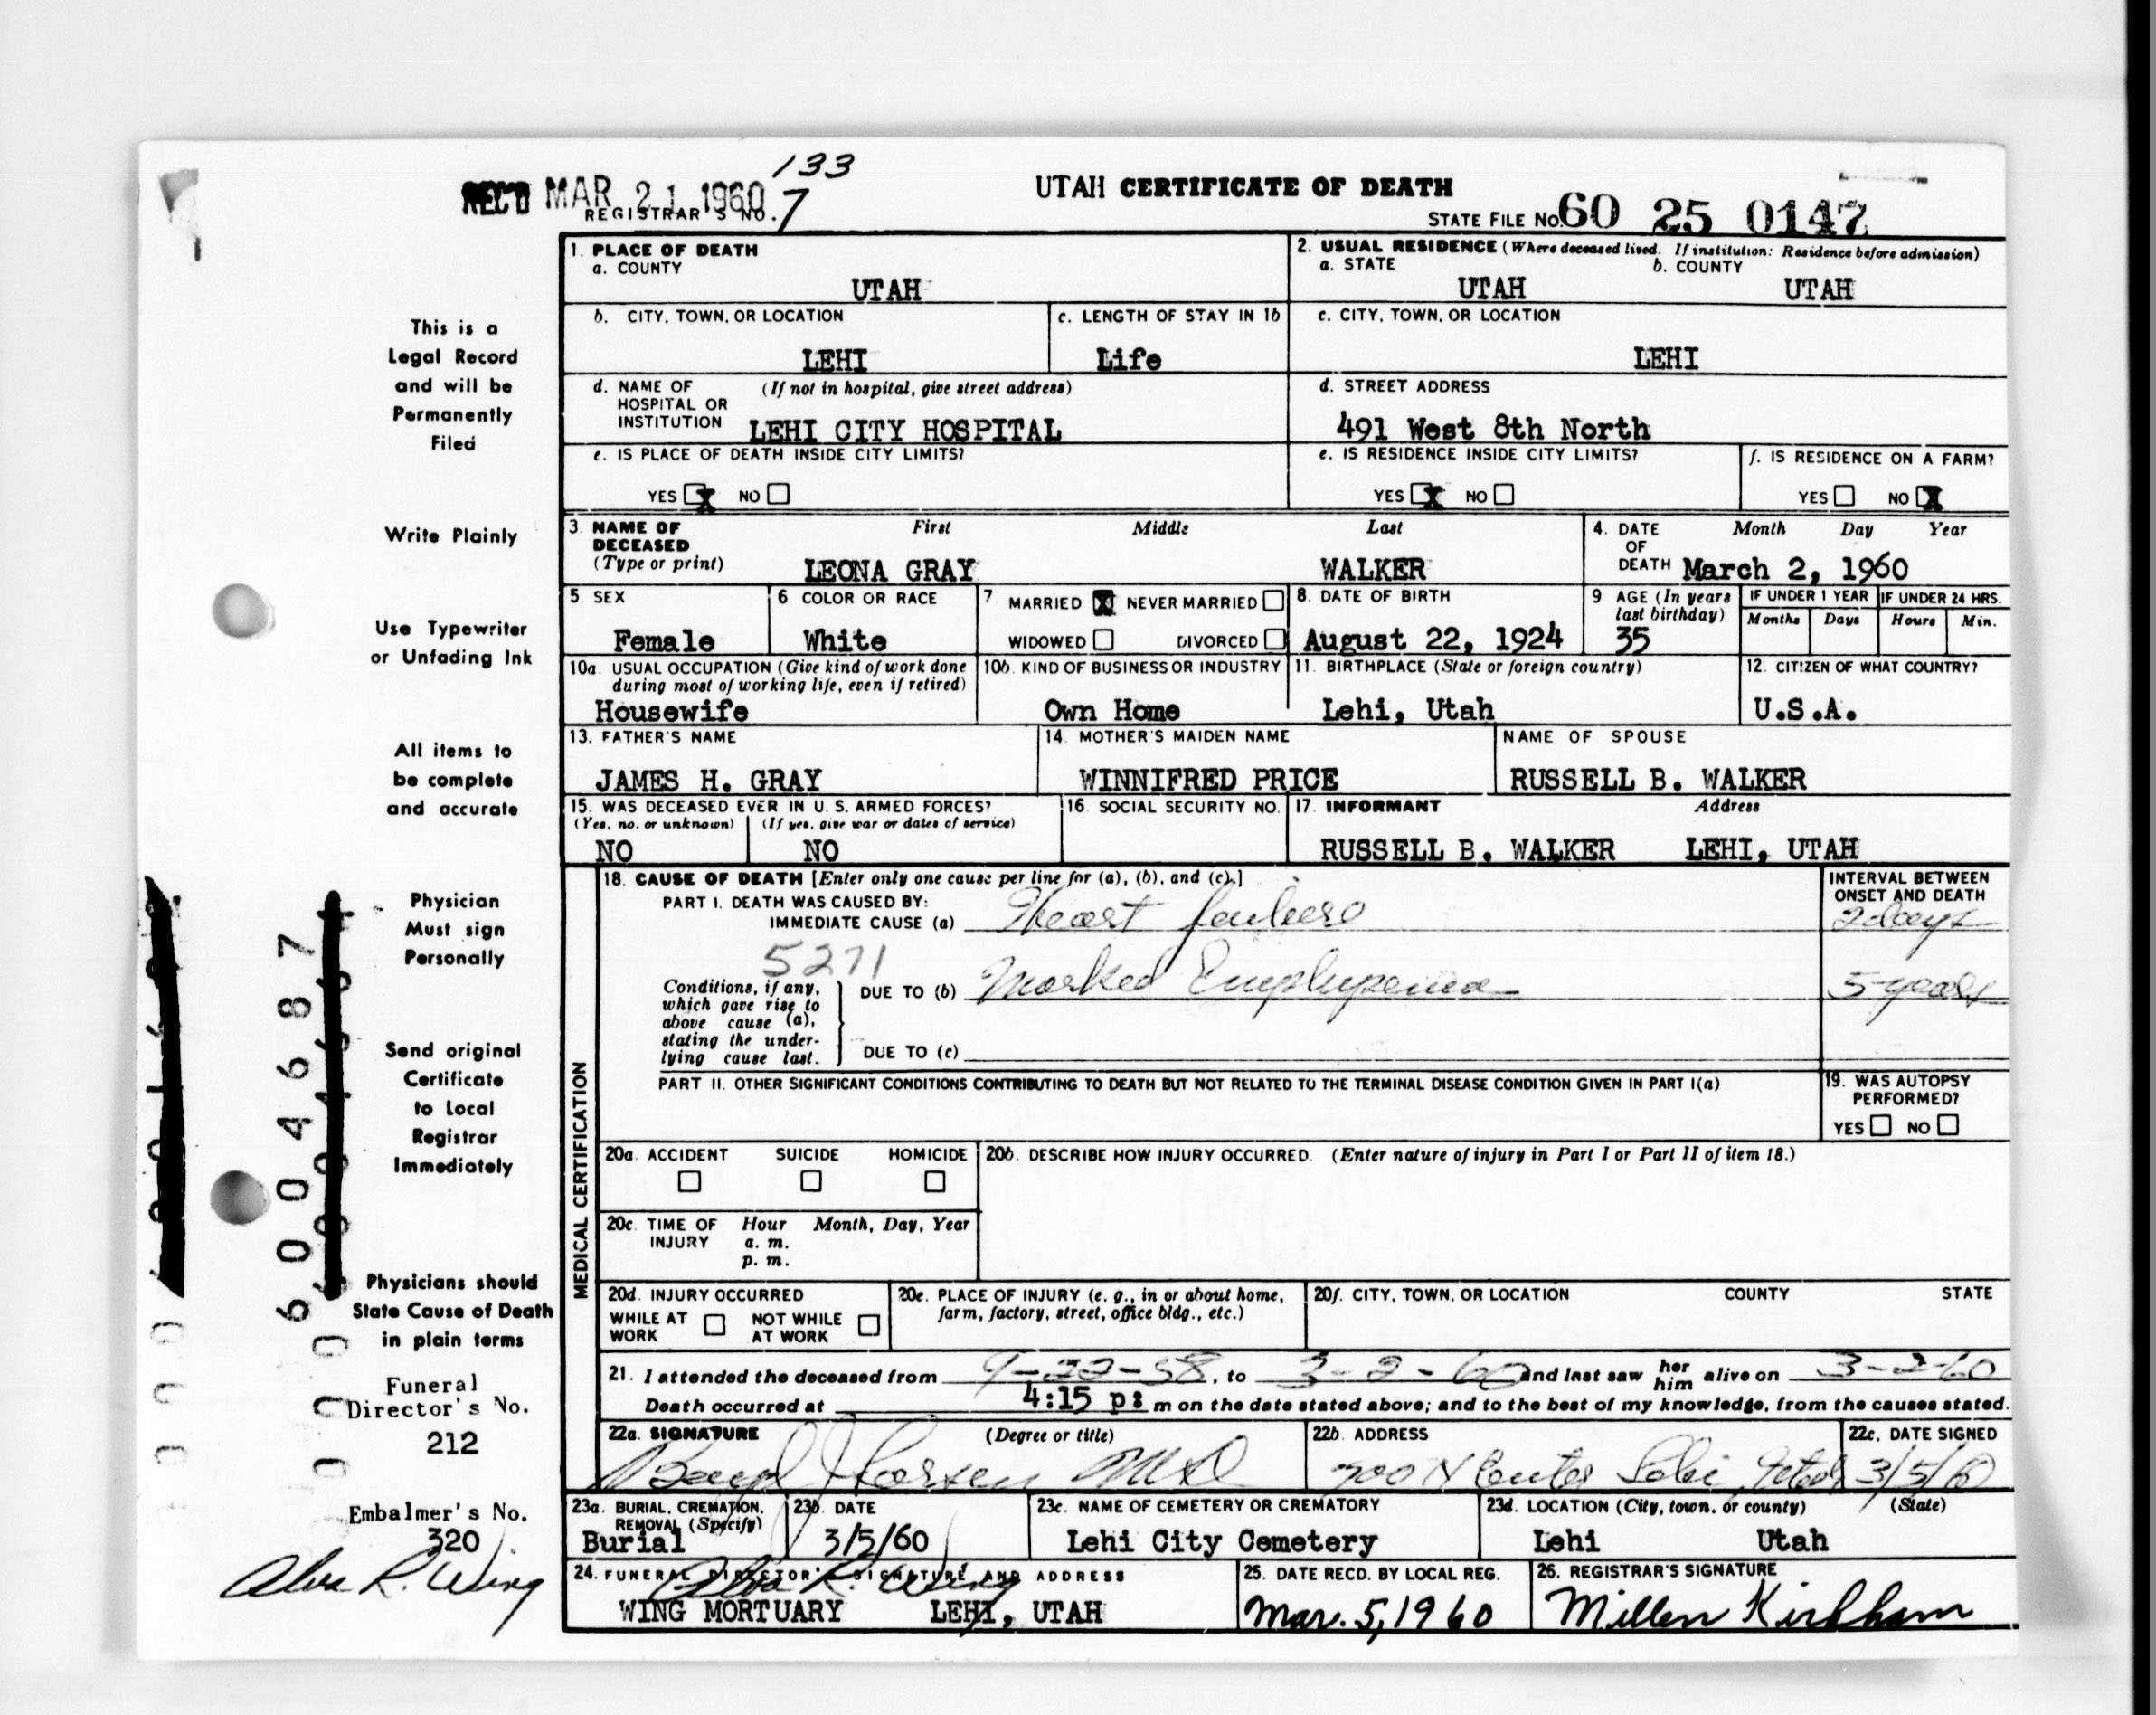 133
REC'D MAR 21 1960
REGISTRAR'S NO. 7
UTAH CERTIFICATE OF DEATH
STATE FILE NO. 60 25 0147
1. PLACE OF DEATH
a. COUNTY
UTAH
2. USUAL RESIDENCE (Where deceased lived. If institution: Residence before admission)
a. STATE b. COUNTY
UTAH UTAH
b. CITY, TOWN, OR LOCATION
LEHI
c. LENGTH OF STAY IN 1b
Life
c. CITY, TOWN, OR LOCATION
LEHI
d. NAME OF (If not in hospital, give street address)
HOSPITAL OR
INSTITUTION LEHI CITY HOSPITAL
d. STREET ADDRESS
491 West 8th North
e. IS PLACE OF DEATH INSIDE CITY LIMITS?
YES X NO
e. IS RESIDENCE INSIDE CITY LIMITS?
YES X NO
f. IS RESIDENCE ON A FARM?
YES NO X
3. NAME OF DECEASED (Type or print)
First Middle Last
LEONA GRAY WALKER
4. DATE OF DEATH Month Day Year
March 2, 1960
5. SEX
Female
6. COLOR OR RACE
White
7. MARRIED X NEVER MARRIED
WIDOWED DIVORCED
8. DATE OF BIRTH
August 22, 1924
9. AGE (In years last birthday)
35
IF UNDER 1 YEAR IF UNDER 24 HRS.
Months Days Hours Min.
10a. USUAL OCCUPATION (Give kind of work done
during most of working life, even if retired)
Housewife
10b. KIND OF BUSINESS OR INDUSTRY
Own Home
11. BIRTHPLACE (State or foreign country)
Lehi, Utah
12. CITIZEN OF WHAT COUNTRY?
U.S.A.
13. FATHER'S NAME
JAMES H. GRAY
14. MOTHER'S MAIDEN NAME
WINNIFRED PRICE
NAME OF SPOUSE
RUSSELL B. WALKER
15. WAS DECEASED EVER IN U. S. ARMED FORCES?
(Yes, no, or unknown) (If yes, give war or dates of service)
NO NO
16. SOCIAL SECURITY NO.
17. INFORMANT Address
RUSSELL B. WALKER LEHI, UTAH
MEDICAL CERTIFICATION
18. CAUSE OF DEATH [Enter only one cause per line for (a), (b), and (c).]
INTERVAL BETWEEN
ONSET AND DEATH
PART I. DEATH WAS CAUSED BY:
IMMEDIATE CAUSE (a) Heart failure 2 days
5271
Conditions, if any,
which gave rise to
above cause (a),
stating the under-
lying cause last.
DUE TO (b) Marked Emphysema 5 years
DUE TO (c)
PART II. OTHER SIGNIFICANT CONDITIONS CONTRIBUTING TO DEATH BUT NOT RELATED TO THE TERMINAL DISEASE CONDITION GIVEN IN PART I(a)
19. WAS AUTOPSY
PERFORMED?
YES NO
20a. ACCIDENT SUICIDE HOMICIDE
20b. DESCRIBE HOW INJURY OCCURRED. (Enter nature of injury in Part I or Part II of item 18.)
20c. TIME OF INJURY Hour Month, Day, Year
a. m.
p. m.
20d. INJURY OCCURRED
WHILE AT WORK NOT WHILE AT WORK
20e. PLACE OF INJURY (e. g., in or about home,
farm, factory, street, office bldg., etc.)
20f. CITY, TOWN, OR LOCATION COUNTY STATE
21. I attended the deceased from 9-22-58, to 3-2-60 and last saw her him alive on 3-2-60
Death occurred at 4:15 p: m on the date stated above; and to the best of my knowledge, from the causes stated.
22a. SIGNATURE (Degree or title)
Boyd J Larsen MD
22b. ADDRESS
N Center Lehi, Utah
22c. DATE SIGNED
3/5/60
23a. BURIAL, CREMATION,
REMOVAL (Specify)
Burial
23b. DATE
3/5/60
23c. NAME OF CEMETERY OR CREMATORY
Lehi City Cemetery
23d. LOCATION (City, town, or county) (State)
Lehi Utah
24. FUNERAL DIRECTOR'S SIGNATURE AND ADDRESS
Alva R. Wing
WING MORTUARY LEHI, UTAH
25. DATE RECD. BY LOCAL REG.
Mar. 5, 1960
26. REGISTRAR'S SIGNATURE
Millen Kirkham
This is a
Legal Record
and will be
Permanently
Filed
Write Plainly
Use Typewriter
or Unfading Ink
All items to
be complete
and accurate
Physician
Must sign
Personally
Send original
Certificate
to Local
Registrar
Immediately
Physicians should
State Cause of Death
in plain terms
Funeral
Director's No.
212
Embalmer's No.
320
Alva R. Wing
6004687